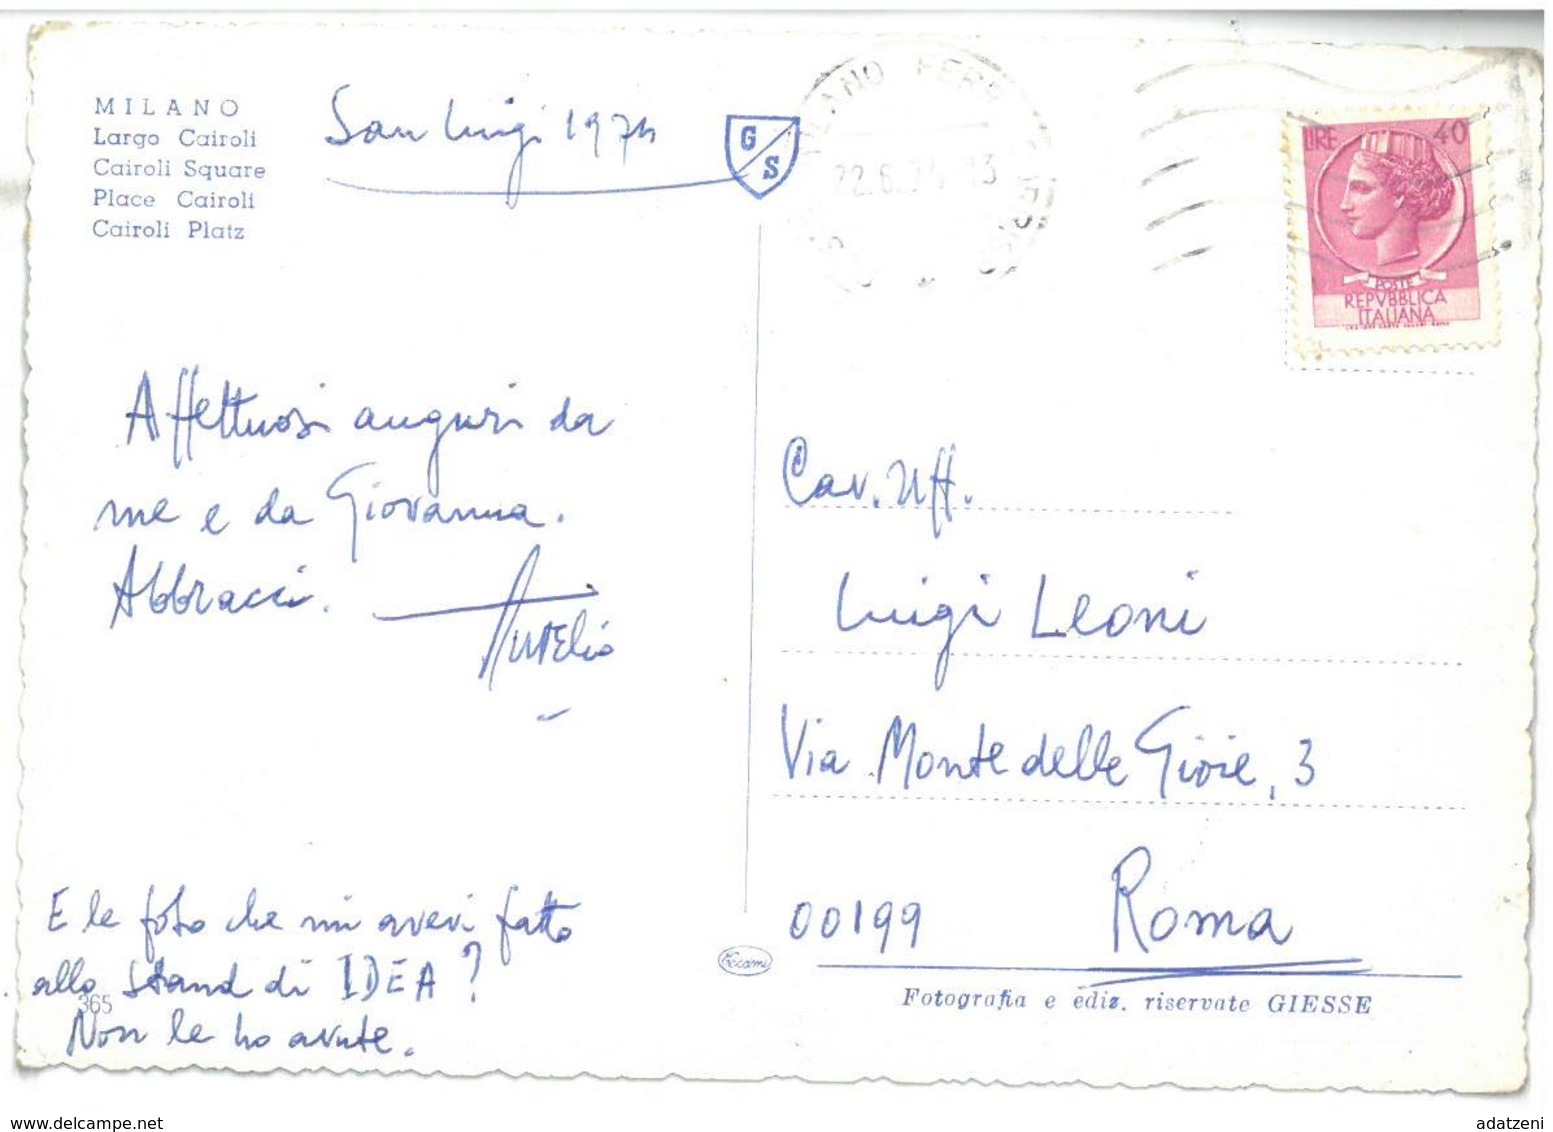 MILANO
Largo Cairoli
Cairoli Square
Place Cairoli
Cairoli Platz
San Luigi 1974
G
S
MILANO FERR
22.6.74 13
LIRE 40
POSTE
REPVBBLICA
ITALIANA
Affettuosi auguri da
me e da Giovanna.
Abbracci.
Aurelio
E le foto che mi avevi fatto
allo stand di IDEA?
Non le ho avute.
365
Cav. Uff.
Luigi Leoni
Via Monte delle Gioie, 3
00199 Roma
Fotografia e ediz. riservate GIESSE
www.delcampe.net
adatzeni